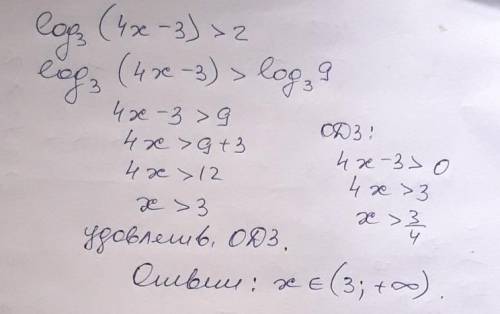 log₃ (4x-3) > 2
log₃ (4x-3) > log₃ 9
4x-3 > 9
4x > 9+3
4x > 12
x > 3
удовлетв. ОДЗ.
ОДЗ:
4x-3 > 0
4x > 3
x > 3/4
Ответ: x ∈ (3; +∞).